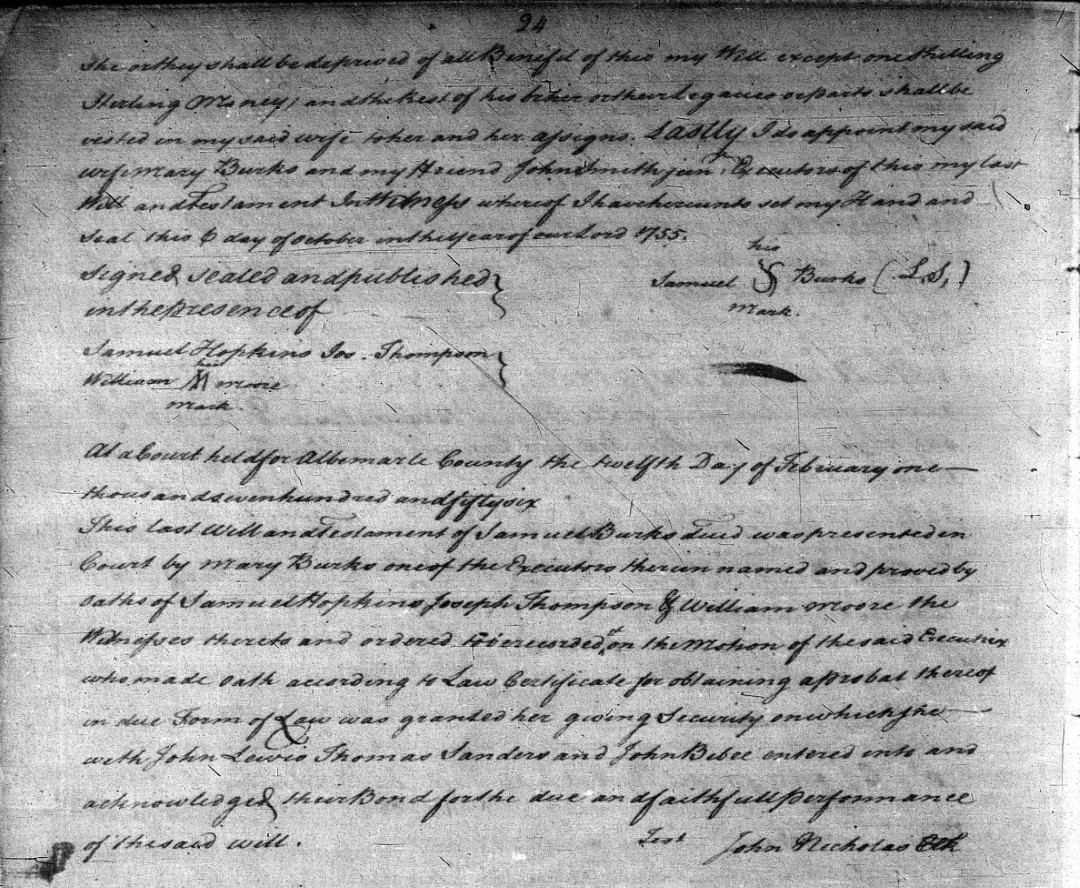 24
She or they shall be deprived of all Benifit of this my Will except one Shilling
Sterling Money, and the Rest of his her or their Legacies or parts shall be
vested in my said wife to her and her assigns. Lastly I do appoint my said
wife Mary Burks and my Friend John Smith jun.r Executors of this my last
Will and Testament In Witness whereof I have hereunto set my Hand and
Seal this 6 day of October in the Year of our Lord 1755.
his
Signed, sealed and published
Samuel Burks (L.S.)
in the Presence of
Mark.
Samuel Hopkins Jos. Thompson
his
William M Moore
Mark.
At a Court held for Albemarle County the twelfth Day of February one
thousand seven hundred and fifty six
This last Will and Testament of Samuel Burks Dec'd was presented in
Court by Mary Burks one of the Executors therein named and proved by
oaths of Samuel Hopkins Joseph Thompson & William Moore the
Witnesses thereto and ordered to be recorded & on the Motion of the said Executrix
who made oath according to Law Certificate for obtaining a probat thereof
in due Form of Law was granted her giving Security on which she
with John Lewis Thomas Sanders and John Bibee entered into and
acknowledged their Bond for the due and faithfull Performance
of the said will.
Test John Nicholas Clk